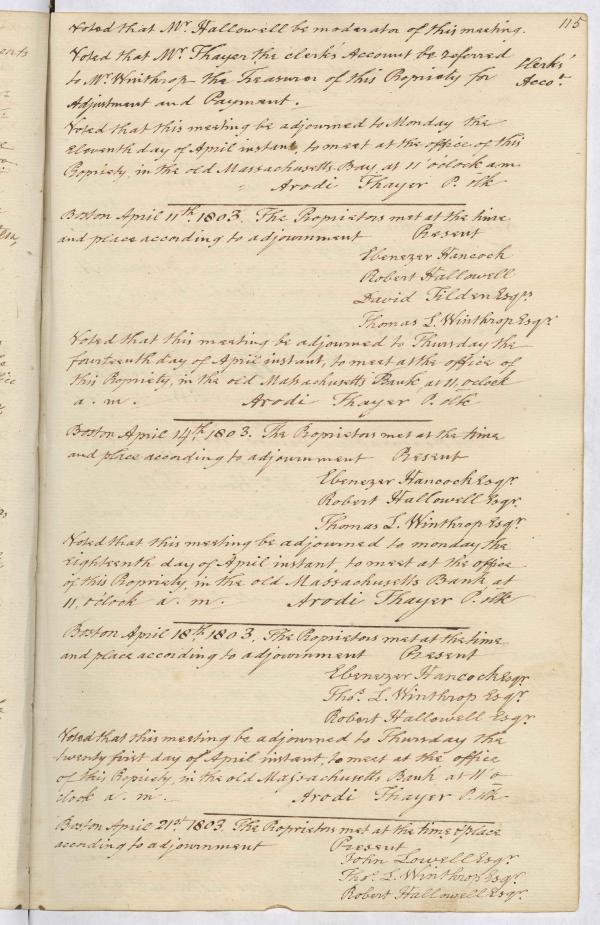 115
Voted that Mr. Hallowell be moderator of this meeting.
Voted that Mr. Thayer the clerk's Account be referred
to Mr. Winthrop the Treasurer of this Propriety for
Adjustment and Payment.
Clerks'
Accot.
Voted that this meeting be adjourned to Monday the
eleventh day of April instant, to meet at the office of this
Propriety, in the old Massachusetts Bay, at 11 oclock a.m
Arodi Thayer P. Clk
Boston April 11th. 1803. The Proprietors met at the time
and place according to adjournment Present
Ebenezer Hancock
Robert Hallowell
David Tilden Esqrs
Thomas L. Winthrop Esqr.
Voted that this meeting be adjourned to Thursday the
fourteenth day of April instant, to meet at the office of
this Propriety, in the old Massachusetts Bank, at 11, oclock
a. m. Arodi Thayer P. Clk
Boston April 14th. 1803. The Proprietors met at the time
and place according to adjournment Present
Ebenezer Hancock Esqr.
Robert Hallowell Esqr.
Thomas L. Winthrop Esqr
Voted that this meeting be adjourned to monday the
Eighteenth day of April instant, to meet at the office
of this Propriety, in the old Massachusetts Bank at
11, o'clock a. m. Arodi Thayer P. Clk
Boston April 18th. 1803. The Proprietors met at the time
and place according to adjournment Present
Ebenezer Hancock Esqr.
Thos. L. Winthrop Esqr.
Robert Hallowell Esqr.
Voted that this meeting be adjourned to Thursday the
twenty first day of April instant, to meet at the office
of this Propriety, in the old Massachusetts Bank at 11 o
clock a. m. Arodi Thayer P. Clk
Boston April 21st. 1803. The Proprietors met at the time & place
according to adjournment Present
John Lowell Esqr.
Thos. L. Winthrop Esqr.
Robert Hallowell Esqr.